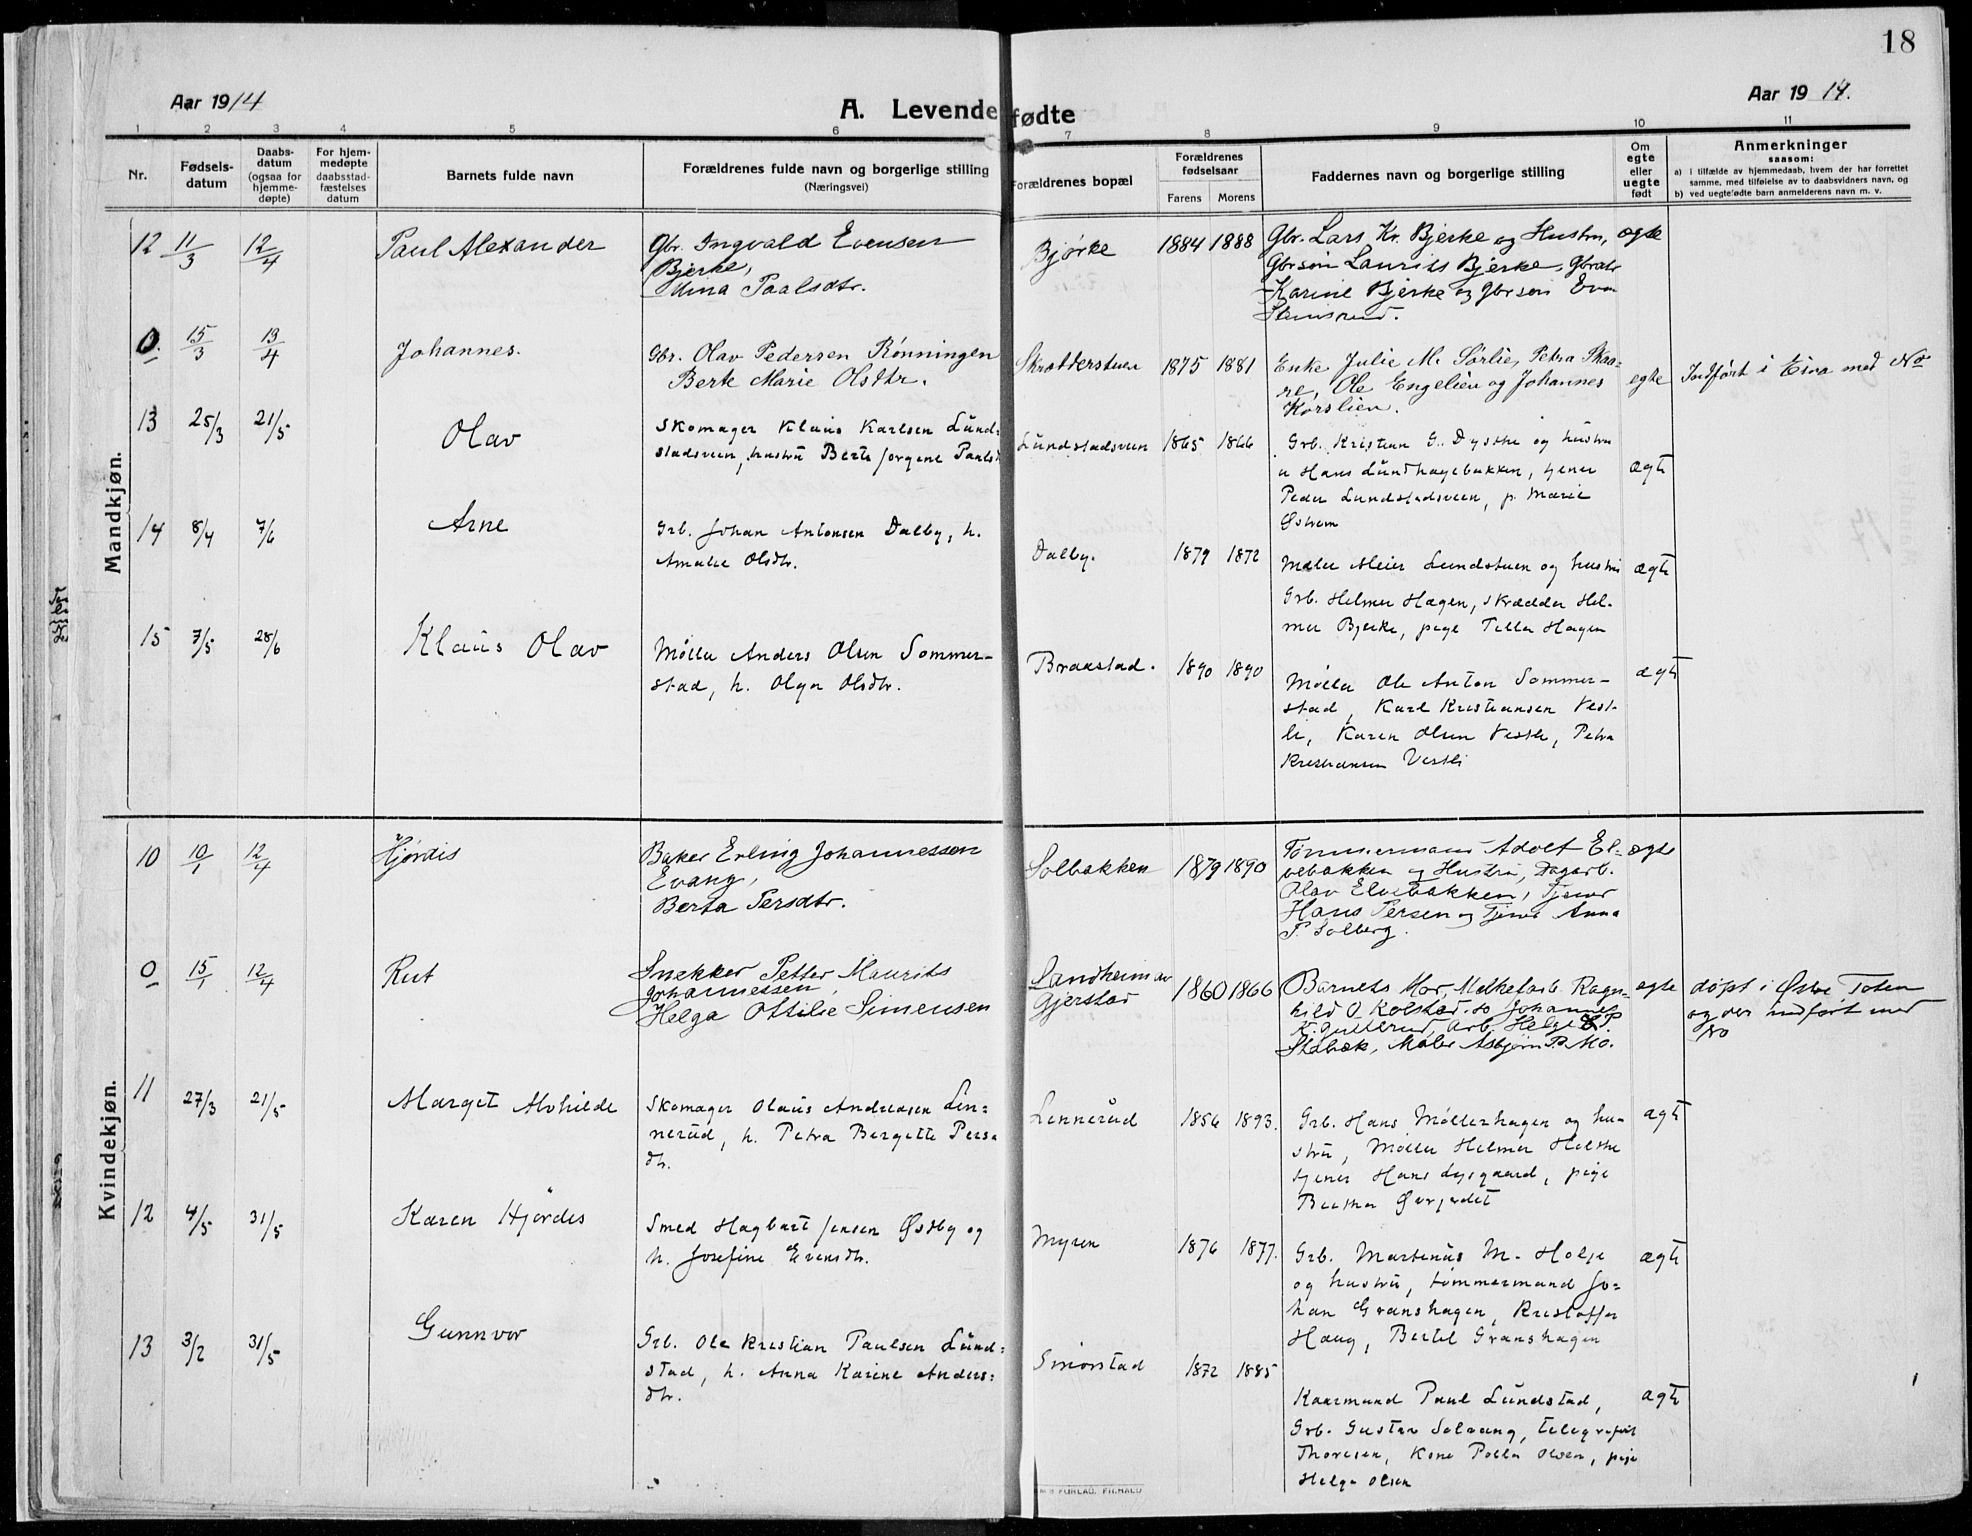 18
Aar 1914
A. Levendefødte
Aar 1914.
1 2 3 4 5 6 7 8 9 10 11
Nr.
Fødsels-
datum
Daabs-
datum
(ogsaa for
hjemme-
døpte)
For hjem-
medøpte
daabsstad-
fæstelses
datum
Barnets fulde navn
Forældrenes fulde navn og borgerlige stilling
(Næringsvei)
Forældrenes bopæl
Forældrenes
fødselsaar
Farens Morens
Faddernes navn og borgerlige stilling
Om
egte
eller
uegte
født
Anmerkninger
saasom:
a) i tilfælde av hjemmedaab, hvem der har forrettet
samme, med tilføielse av to daabsvidners navn, og
b) ved uegtefødte barn anmelderens navn m. v.
Mandkjøn.
12 11/3 12/4 Paul Alexander
Gbr. Ingvald Evensen
Bjerke,
Paalsdtr.
Bjørke 1884 1888
Gbr. Lars Kr. Bjerke og Hustru,
Gbrsøn Laurits Bjerke, Gbrdtr
Karine Bjerke og Gbrsøn
egte
0. 15/3 13/4 Johannes.
Gbr. Olav Pedersen Rønningen
Berte Marie Olsdtr.
1875 1881
Enke Julie M. Sørlie, Petra Skaa-
re, Ole Engelien og Johannes
Korslien.
egte
Indført i Eina med No
13 25/3 21/5 Olav
Skomager Klaus Karlsen Lund-
stadsveen, hustru Berte Jørgine
Lundstadsveen 1865 1866
Grb. Kristian G. Dysthe og hustru
Hans Lundhagebakken, tjener
Peder Lundstadsveen, p. Marie
Østrem
ægte
14 8/4 7/6 Arne
Grb. Johan Antonsen Dalby, h.
Amalie Olsdtr.
Dalby. 1879 1872
Maler Meier Lundstuen og hustru
Grb. Helmer Hagen, skrædder Hel-
mer Bjerke, pige Tilla Hagen
ægte
15 7/5 28/6 Klaus Olav
Møller Anders Olsen Sommer-
stad, h. Olga Olsdtr.
Braastad. 1890 1890
Møller Ole Anton Sommer-
stad, Karl Kristiansen Vest-
li, Karen Olsen Vestli, Petra
Kristiansen Vestli
ægte
Kvindekjøn.
10 10/1 12/4 Hjørdis
Baker Erling Johannessen
Evang,
Berta Persdtr.
Solbakken 1879 1890
Tømmermand Adolf El-
vebakken og Hustru, Dagarb.
Olav Elvebakken, Tjener
Hans Persen og Tjener Anna
P. Solberg.
egte
0 15/1 12/4 Rut
Snekker Petter Maurits
Johannessen,
Helga Ottilie Simensen
Landheim av
Gjerstad
1860 1866
Barnets Mor, Melkearb. Ragn-
hild O. Kolstad, Johannes
K. Gullerud, arb. Helge P.
Stabæk, Maler Asbjørn P. Mo.
egte
døpt i Østre Toten
og der indført med
No
11 27/3 21/5 Marget Alvhilde
Skomager Olaus Andreasen Lin-
nerud, h. Petra Bergitte Pers-
dtr.
Linnerud 1856 1893.
Grb. Hans Møllerhagen og hu-
stru, Møller Helmer
tjener Hans Lysgaard, pige
ægte
12 4/5 31/5 Karen Hjørdis
Smed Hagbart Jensen Østby og
h. Josefine Evensdtr.
Myren 1876 1877.
Grb. Martinus M. Holje
og hustru, tømmermand Jo-
han Granshagen, Kristoffer
Haug, Bertil Granshagen
ægte
13 3/2 31/5 Gunnvor
Grb. Ole Kristian Paulsen Lund-
stad, h. Anna Karine Anders-
dtr.
Smørstad 1872 1885
Kaarmand Paul Lundstad,
Grb. Gustav Solvang, telegrafist
Thoresen, Kone Polla Olsen, pige
Helga Olsen
ægte